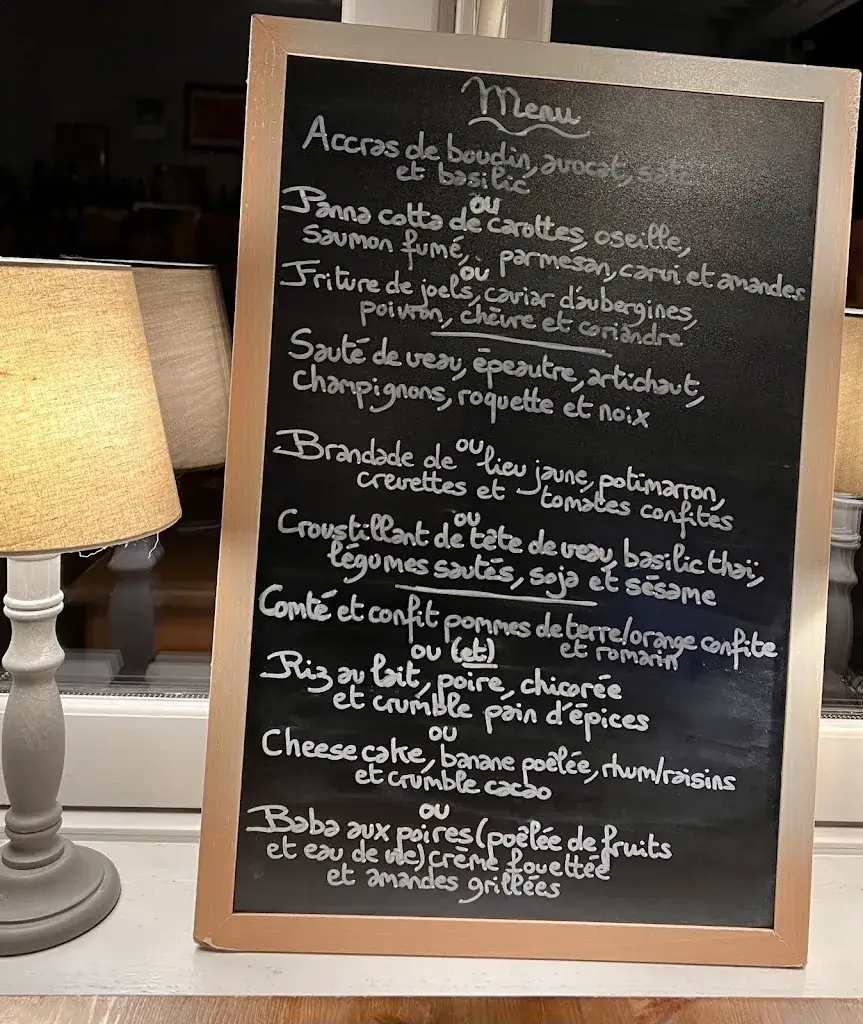 Menu
Accras de boudin, avocat, saté
et basilic
ou
Panna cotta de carottes, oseille,
saumon fumé, parmesan, carvi et amandes
ou
Friture de joels, caviar d'aubergines,
poivron, chèvre et coriandre
Sauté de veau, épeautre, artichaut,
champignons, roquette et noix
ou
Brandade de lieu jaune, potimarron,
crevettes et tomates confites
ou
Croustillant de tête de veau, basilic thaï,
légumes sautés, soja et sésame
Comté et confit pommes de terre/orange confite
et romarin
ou (et)
Riz au lait, poire, chicorée
et crumble pain d'épices
ou
Cheese cake, banane poêlée, rhum/raisins
et crumble cacao
ou
Baba aux poires (poêlée de fruits
et eau de vie) crème fouettée
et amandes grillées